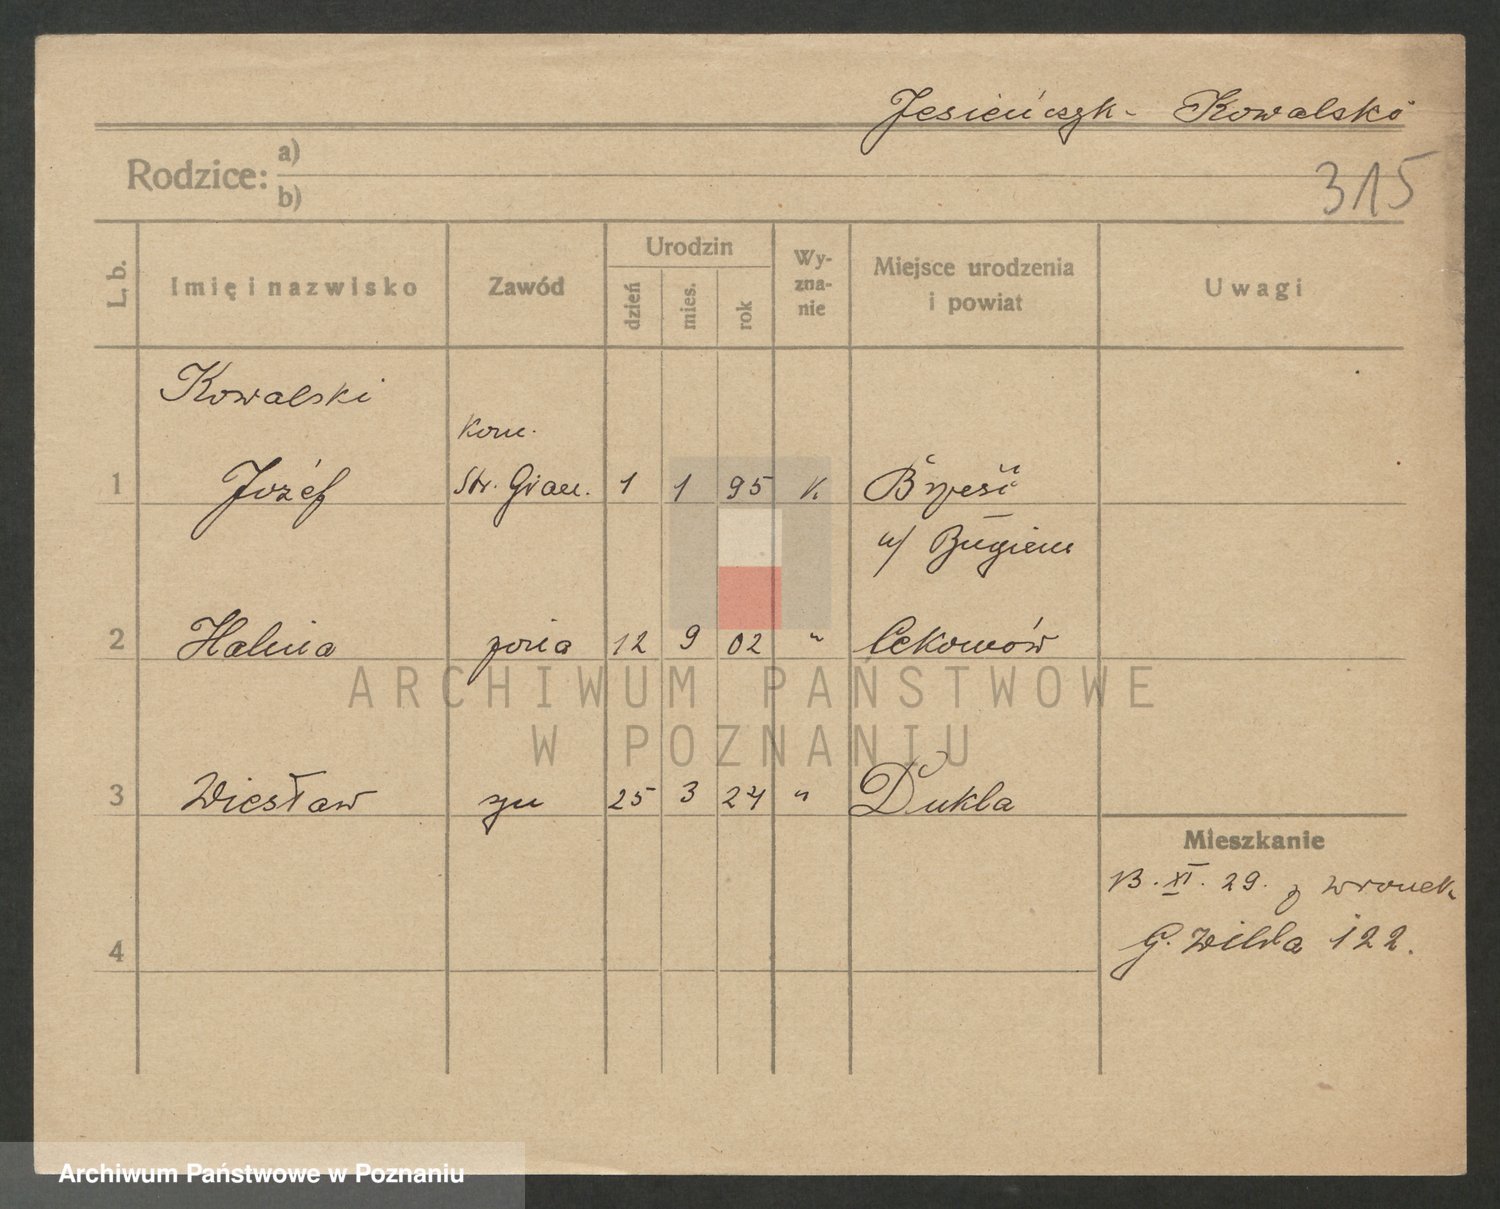 Jesieńczyk- Kowalski
Rodzice: a)
b)
315
L. b.
Imię i nazwisko
Zawód
Urodzin
dzień
mies.
rok
Wy-
zna-
nie
Miejsce urodzenia
i powiat
Uwagi
Kowalski
kom.
1 Józef Str. Gran. 1 1 95 K Brześć
n/ Bugiem
2 Halina żona 12 9 02 "
ARCHIWUM PAŃSTWOWE
W POZNANIU
3 Wiesław syn 25 3 24 " Dukla
Mieszkanie
13. XI. 29. z Wronek
4
G. Wilda 122.
Archiwum Państwowe w Poznaniu